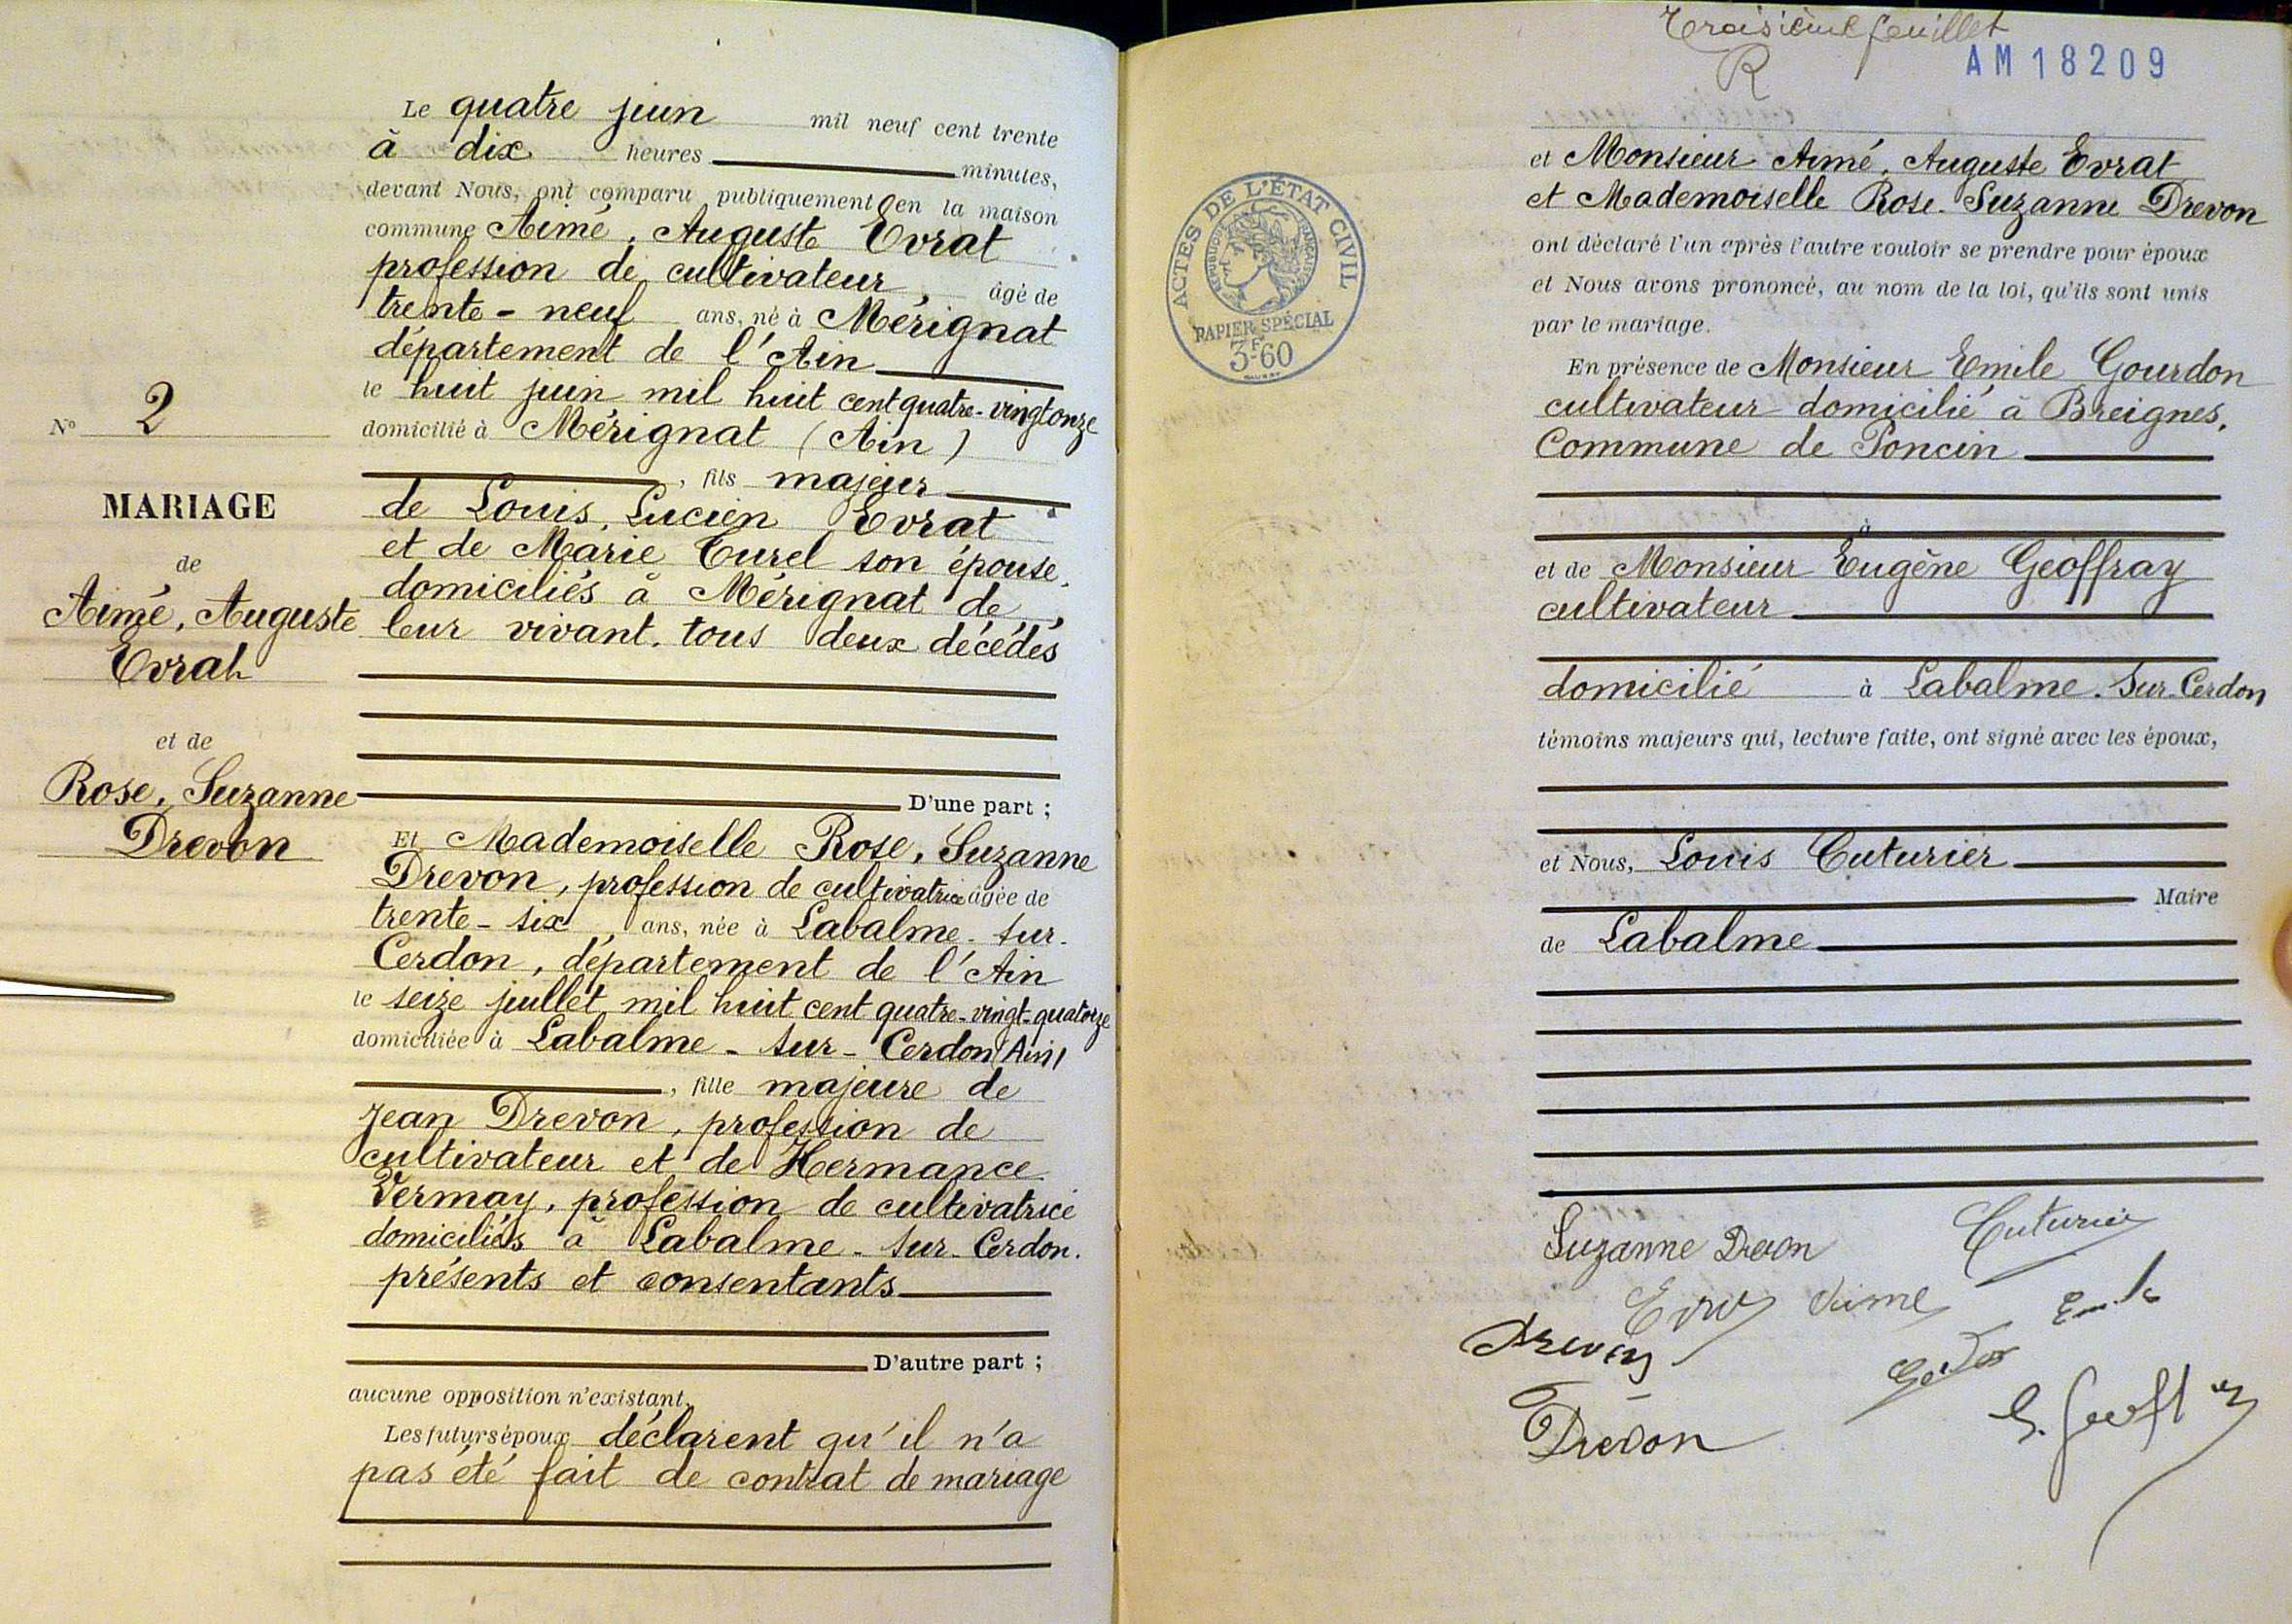 Le quatre juin mil neuf cent trente
à dix heures minutes,
devant Nous, ont comparu publiquement en la maison
commune Aimé, Auguste Evrat
profession de cultivateur, âgé de
trente-neuf ans, né à Mérignat
département de l'Ain
le huit juin mil huit cent quatre-vingt onze
domicilié à Mérignat (Ain)
, fils majeur
de Louis, Lucien Evrat
et de Marie Curel son épouse,
domiciliés à Mérignat de
leur vivant, tous deux décédés
D'une part ;
N° 2
MARIAGE
de
Aimé, Auguste
Evrat
et de
Rose, Suzanne
Drevon
Et Mademoiselle Rose, Suzanne
Drevon, profession de cultivatrice âgée de
trente-six ans, née à Labalme-sur-
Cerdon, département de l'Ain
le seize juillet mil huit cent quatre-vingt-quatorze
domiciliée à Labalme-sur-Cerdon (Ain)
, fille majeure de
Jean Drevon, profession de
cultivateur et de Hermance
Vermay, profession de cultivatrice
domiciliés à Labalme-sur-Cerdon.
présents et consentants
D'autre part ;
aucune opposition n'existant.
Les futurs époux déclarent qu'il n'a
pas été fait de contrat de mariage
Troisième feuillet
R
AM18209
ACTES DE L'ÉTAT CIVIL
RÉPUBLIQUE FRANÇAISE
PAPIER SPÉCIAL
3F60
et Monsieur Aimé, Auguste Evrat
et Mademoiselle Rose-Suzanne Drevon
ont déclaré l'un après l'autre vouloir se prendre pour époux
et Nous avons prononcé, au nom de la loi, qu'ils sont unis
par le mariage.
En présence de Monsieur Emile Gourdon
cultivateur domicilié à Breignes,
Commune de Poncin
à
et de Monsieur Eugène Geoffray
cultivateur
domicilié à Labalme-sur-Cerdon
témoins majeurs qui, lecture faite, ont signé avec les époux,
et Nous, Louis Cuturier
Maire
de Labalme
Suzanne Drevon
Cuturier
Evrat Aimé
Emile
Drevon
Drevon